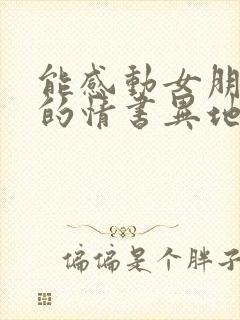 能感動女朋
的情書異地
偏偏是个胖子